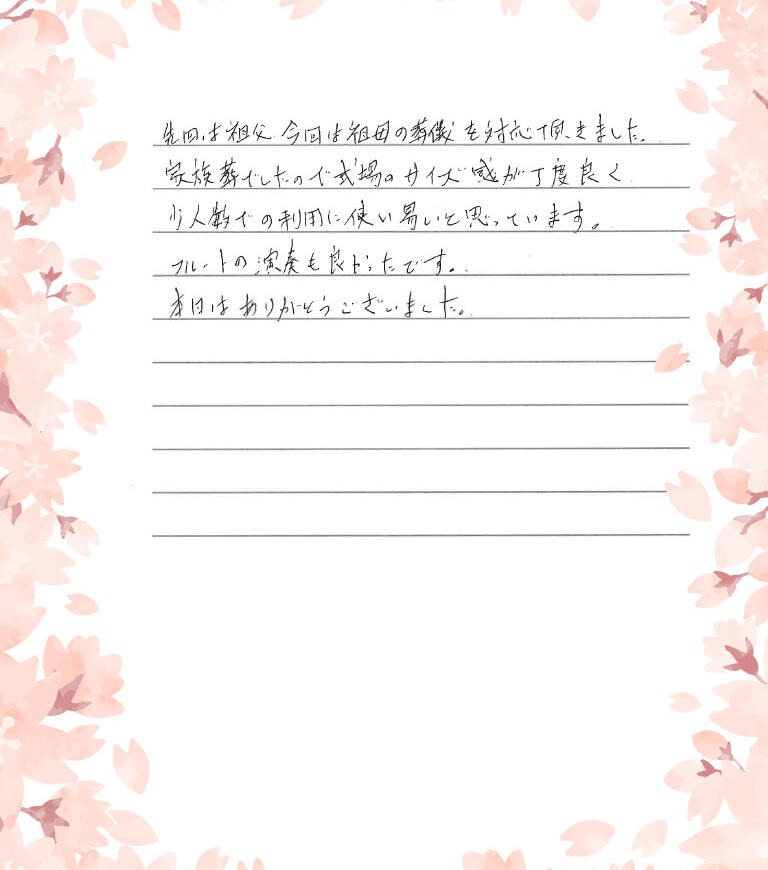 先回は祖父、今回は祖母の葬儀を対応頂きました。
家族葬でしたので式場のサイズ感が丁度良く
少人数での利用に使い易いと思っています。
フルートの演奏も良かったです。
本日はありがとうございました。